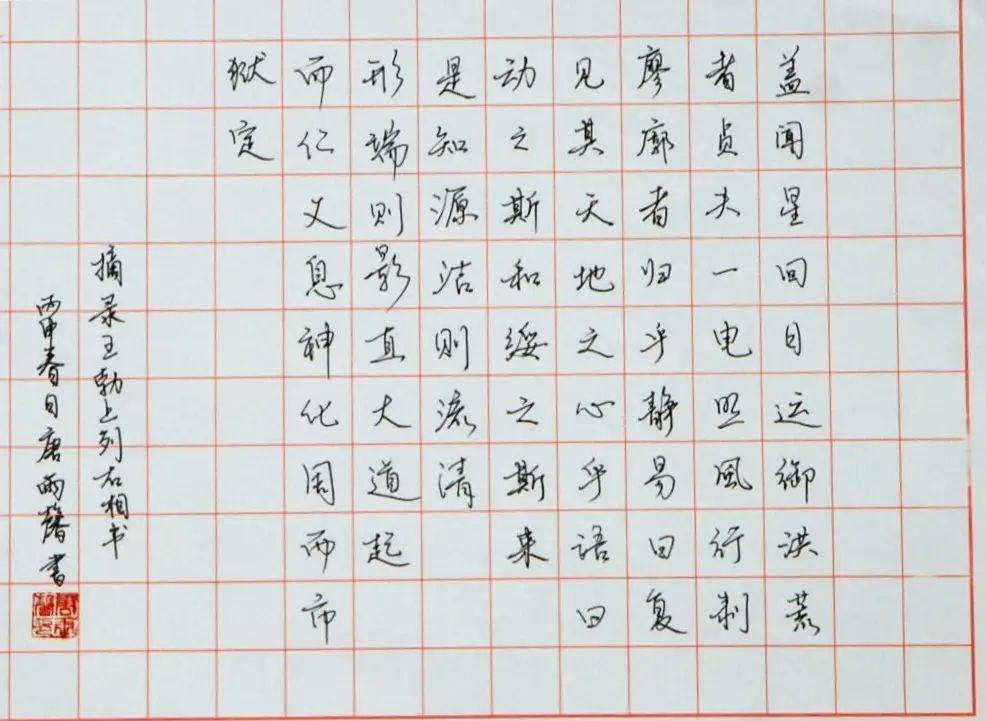 盖闻星回日运御洪荒
者贞夫一电照风行制
廖廓者归乎静易曰复
见其天地之心乎语曰
动之斯和绥之斯来
是知源洁则流清
形端则影直大道起
而仁义息神化周而市
狱定
摘录王勃上列右相书
丙申春日唐雨馨书